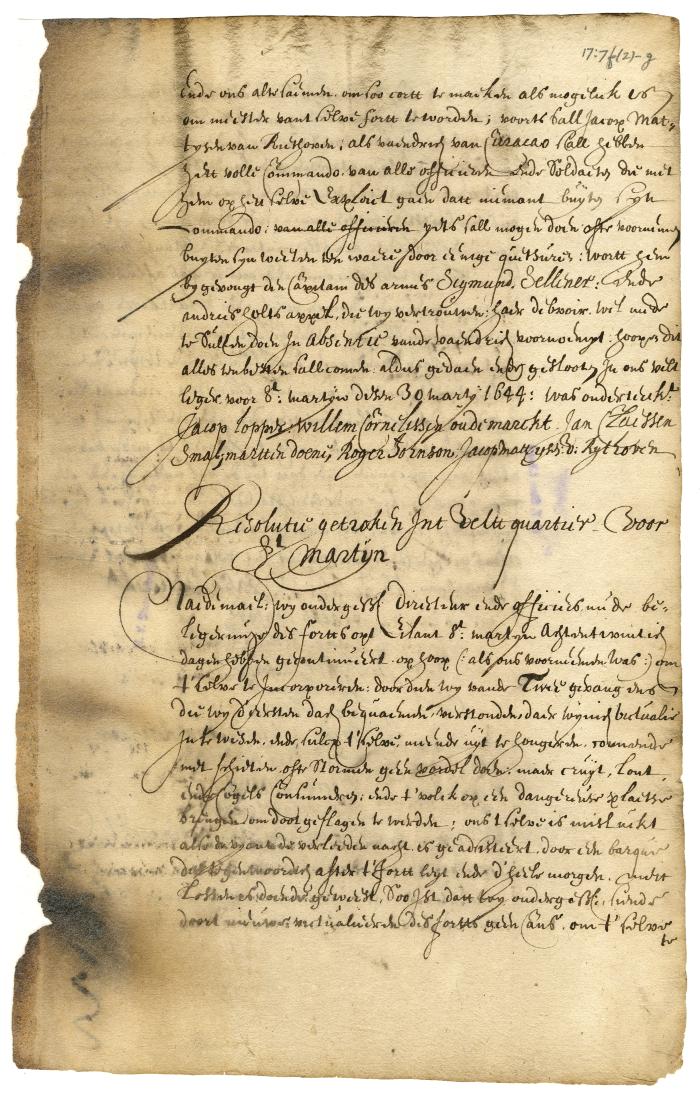 17:7f(2)-g
Ende ons alte samen, om soo cortt te maeken als mogelick is
om meester vant selve fortt te worden; voorts sall Jacop Mat-
tysen van Riethoven, als vaendrich van Curacao sall hebben
hett volle Commando van alle officieren Ende Soldaten die mit
hem op hett selve Exploict gaen datt niemant buyten syn
Commando: van alle officieren yets sall mogen doen ofte voornemen
buyten syn weeten ten waere door eenige quetsuren: wortt hem
by gevougt den Capitain des armes Sigmund Selliner: Ende
andries holtsappel, die wy vertrouwen: haer debvoir wel mede
te sullen doen In Absentie vande vaendrich voornoempt: hoopen dit
alles ten besten sall comen: aldus gedaen ende geslooten In ons velt
leger voor St. martyn desen 30 marty 1644: was onderteickt.
Jacop Lopper: willem Cornelissen oudemarckt Jan Claessen
Smal, martten doene, Roger Tornson Jacop mattyssz. v: Rythoven
Resolutie getroken Int Veltt quartier Voor
St. martyn
Naedemael: wy ondergess. Directeur ende officiers nu de be-
legeringe des fortts opt Eilant St. martyn Achtentwintich
dagen hebben gecontinueert op hoop (: als ons voornemen was:) om
t'selve te Incorporeren: doordien wy vande Twee gevangens
die wy d'eersten dach bequaemen, verstonden, daer weynich victualie
In te wesen, ende sulcx t'selve, meende uyt te hongeren, comende
met schieten ofte Stormen geen vordel doen, maer cruyt, Lont,
ende Cogels Consumeren; ende t'volck op een dangereuse plaetse
brengen om doot geslagen te werden; ons t'selve is mislukt
alsoo de vyant de verleeden nacht, is geadsisteert, door een barque
die tegenwoordich after t'fortt legt ende d'heele morgen, mett
Lossen is doende geweest, Soo Ist datt wy ondergess. siende
doort nieuwe victualieren des fortts geen Cans, om t'selve
te